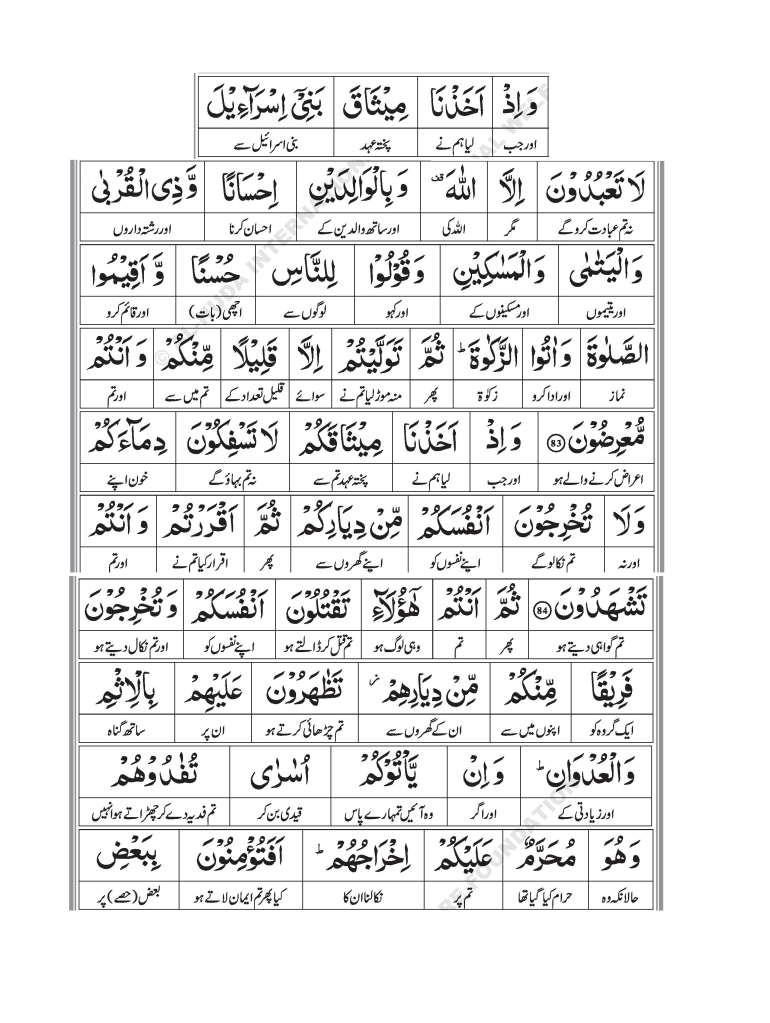 وَ اِذْ اَخَذْنَا مِيْثَاقَ بَنِىْٓ اِسْرَآءِيْلَ
اور جب لیا ہم نے پختہ عہد بنی اسرائیل سے
لَا تَعْبُدُوْنَ اِلَّا اللّٰهَ وَ بِالْوَالِدَيْنِ اِحْسَانًا وَّ ذِى الْقُرْبٰى
نہ تم عبادت کرو گے مگر اللہ کی اور ساتھ والدین کے احسان کرنا اور رشتہ داروں
وَ الْيَتٰمٰى وَ الْمَسٰكِيْنِ وَ قُوْلُوْا لِلنَّاسِ حُسْنًا وَّ اَقِيْمُوا
اور یتیموں اور مسکینوں کے اور کہو لوگوں سے اچھی (بات) اور قائم کرو
الصَّلٰوةَ وَ اٰتُوا الزَّكٰوةَ ؕ ثُمَّ تَوَلَّيْتُمْ اِلَّا قَلِيْلًا مِّنْكُمْ وَ اَنْتُمْ
نماز اور ادا کرو زکوٰۃ پھر منہ موڑ لیا تم نے سوائے قلیل تعداد کے تم میں سے اور تم
مُّعْرِضُوْنَ 83 وَ اِذْ اَخَذْنَا مِيْثَاقَكُمْ لَا تَسْفِكُوْنَ دِمَآءَكُمْ
اعراض کرنے والے ہو اور جب لیا ہم نے پختہ عہد تم سے نہ تم بہاؤ گے خون اپنے
وَ لَا تُخْرِجُوْنَ اَنْفُسَكُمْ مِّنْ دِيَارِكُمْ ثُمَّ اَقْرَرْتُمْ وَ اَنْتُمْ
اور نہ تم نکالو گے اپنے نفسوں کو اپنے گھروں سے پھر اقرار کیا تم نے اور تم
تَشْهَدُوْنَ 84 ثُمَّ اَنْتُمْ هٰٓؤُلَآءِ تَقْتُلُوْنَ اَنْفُسَكُمْ وَ تُخْرِجُوْنَ
تم گواہی دیتے ہو پھر تم وہی لوگ ہو تم قتل کر ڈالتے ہو اپنے نفسوں کو اور تم نکال دیتے ہو
فَرِيْقًا مِّنْكُمْ مِّنْ دِيَارِهِمْ تَظٰهَرُوْنَ عَلَيْهِمْ بِالْاِثْمِ
ایک گروہ کو اپنوں میں سے ان کے گھروں سے تم چڑھائی کرتے ہو ان پر ساتھ گناہ
وَ الْعُدْوَانِ ؕ وَ اِنْ يَّاْتُوْكُمْ اُسٰرٰى تُفٰدُوْهُمْ
اور زیادتی کے اور اگر وہ آئیں تمہارے پاس قیدی بن کر تم فدیہ دے کر چھڑاتے ہو انہیں
وَ هُوَ مُحَرَّمٌ عَلَيْكُمْ اِخْرَاجُهُمْ ؕ اَفَتُؤْمِنُوْنَ بِبَعْضِ
حالانکہ وہ حرام کیا گیا تھا تم پر نکالنا ان کا کیا پھر تم ایمان لاتے ہو بعض (حصے) پر